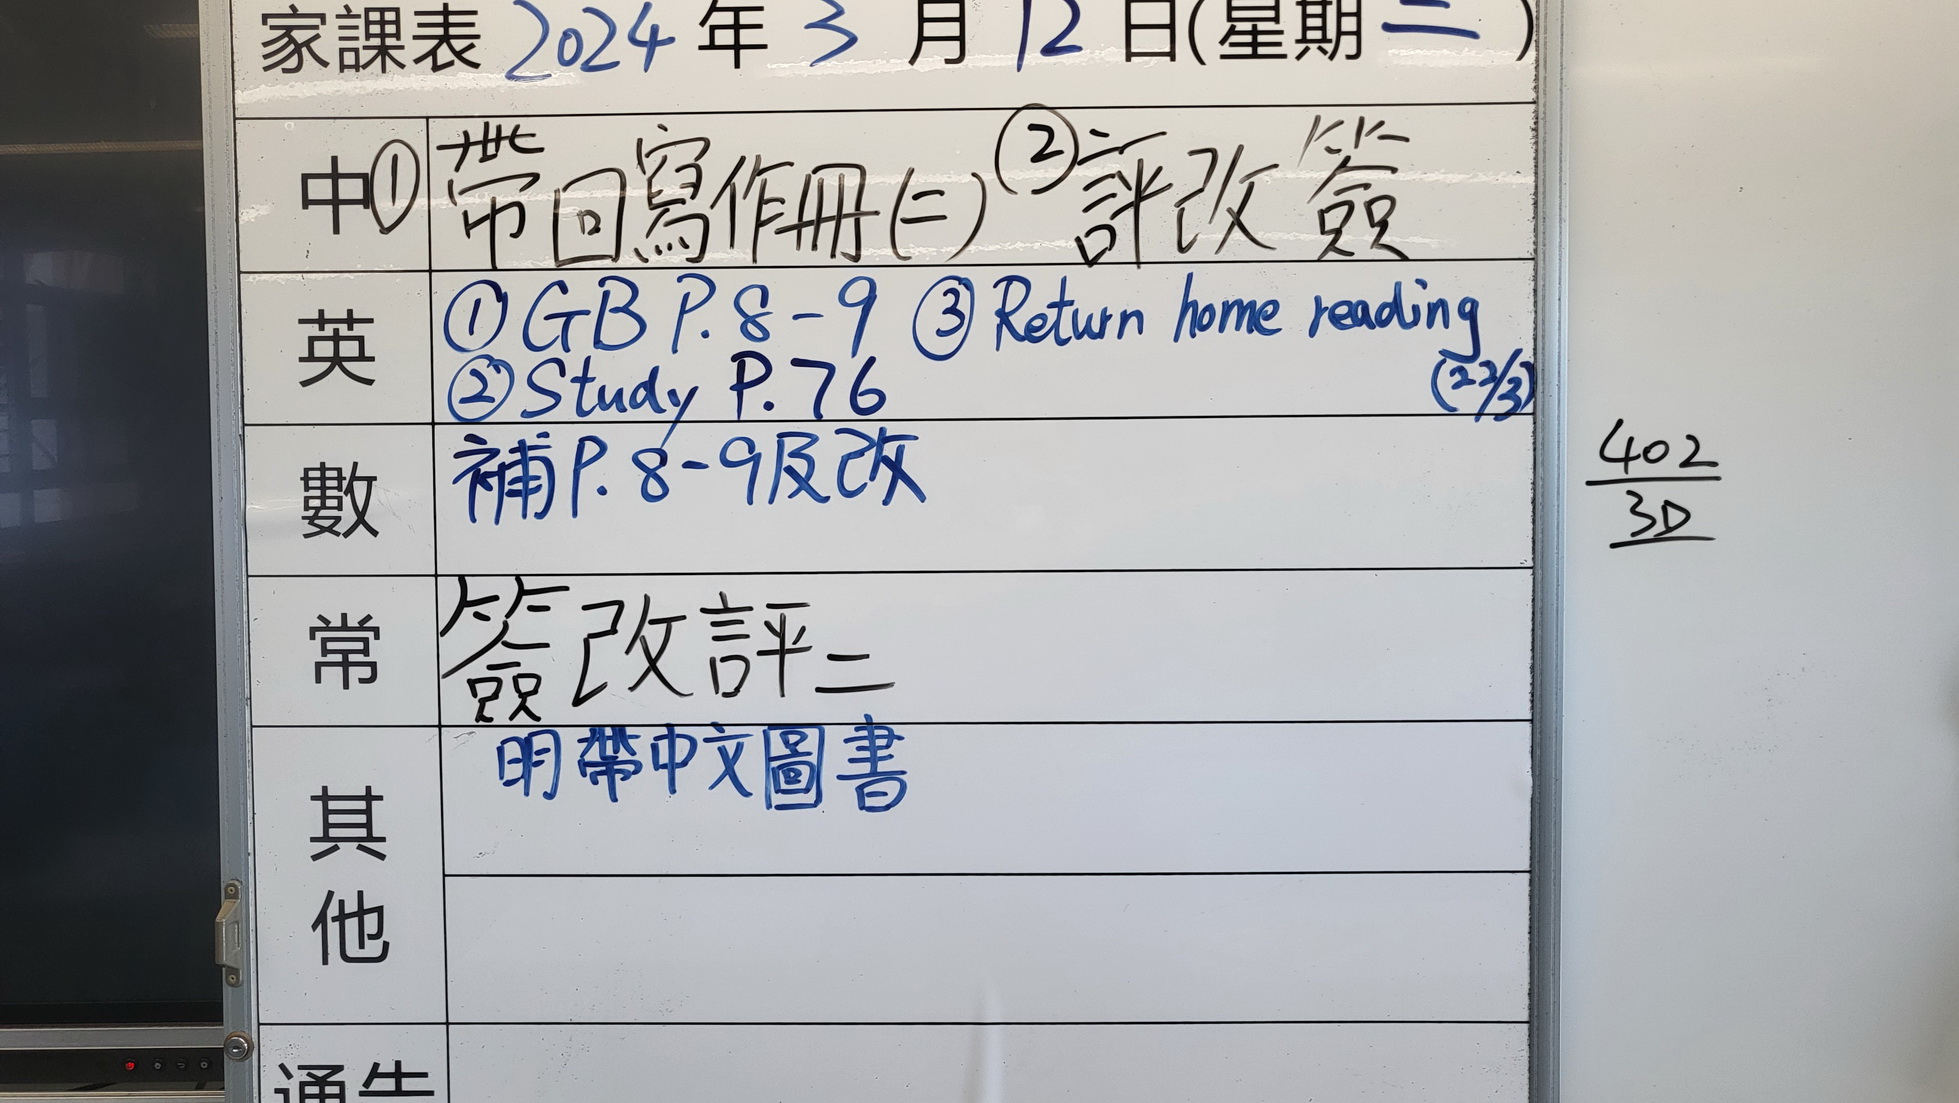 家課表 2024 年 3 月 12 日(星期二)
中 ① 帶回寫作冊(二) ② 評改簽
英 ① GB P.8-9 ③ Return home reading
② Study P.76 (22/3)
數 補P.8-9及改
常 簽改評二
其他 明帶中文圖書
通告
402
3D